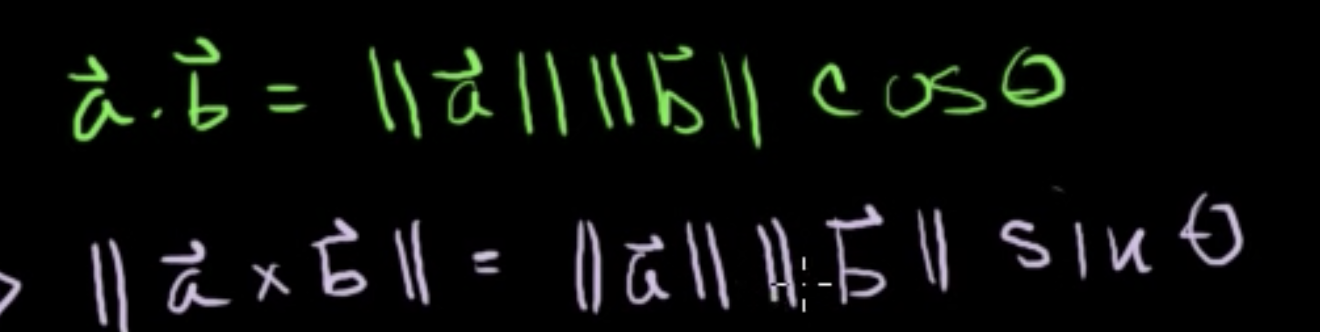 a⃗ · b⃗ = ||a⃗|| ||b⃗|| cos θ
||a⃗ × b⃗|| = ||a⃗|| ||b⃗|| sin θ